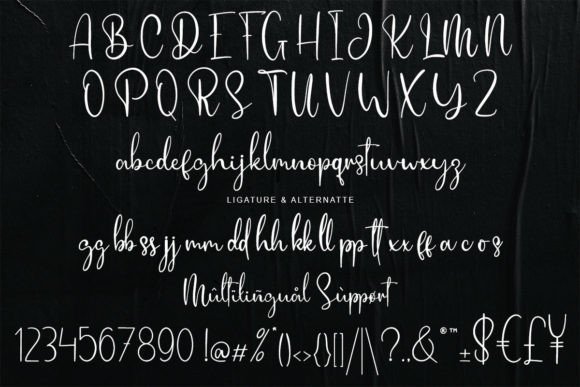 ABCDEFGHIJKLMN
OPQRSTUVWXYZ
abcdefghijklmnopqrstuvwxyz
LIGATURE & ALTERNATTE
gg bb ss jj mm dd hh kk ll pp tt xx ff a c o s
Mûltilinguål Sùpport
1234567890 !@#%*()<>{}[]/|\?.,&®™ ±$€£¥